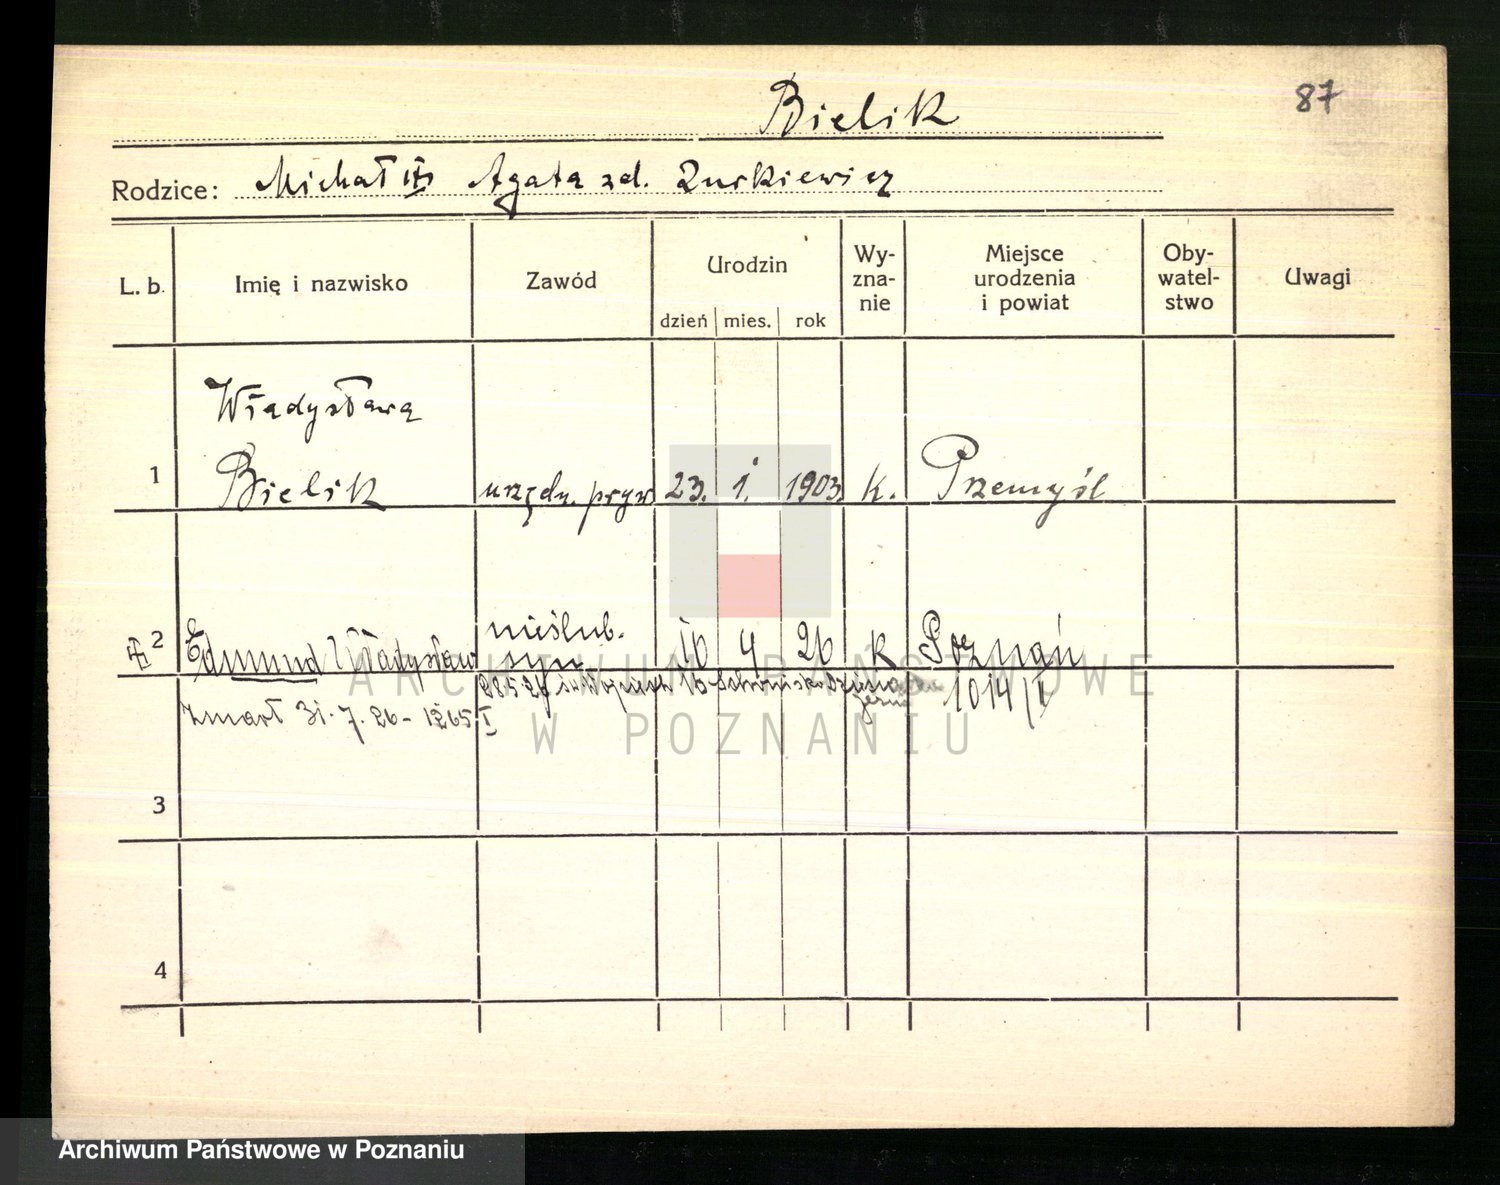 87
Bielik
Rodzice: Michał Agata zd. Zurkiewicz
L. b. Imię i nazwisko Zawód Urodzin dzień mies. rok Wy- zna- nie Miejsce urodzenia i powiat Oby- watel- stwo Uwagi
Władysława
1 Bielik urzędn. pryw. 23. 1. 1903. k. Przemyśl
nieślub.
2 Edmund Władysław syn 10 4 26 k Poznań
28.5.26 1014/I
Zmarł 31.7.26 - 1265 I
3
4
ARCHIWUM PAŃSTWOWE
W POZNANIU
Archiwum Państwowe w Poznaniu